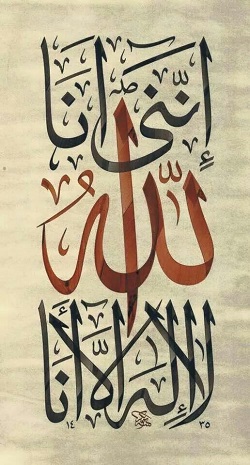 إِنَّنِي أَنَا
اللهُ
لَا إِلَهَ إِلَّا أَنَا
١٤ ٣٥